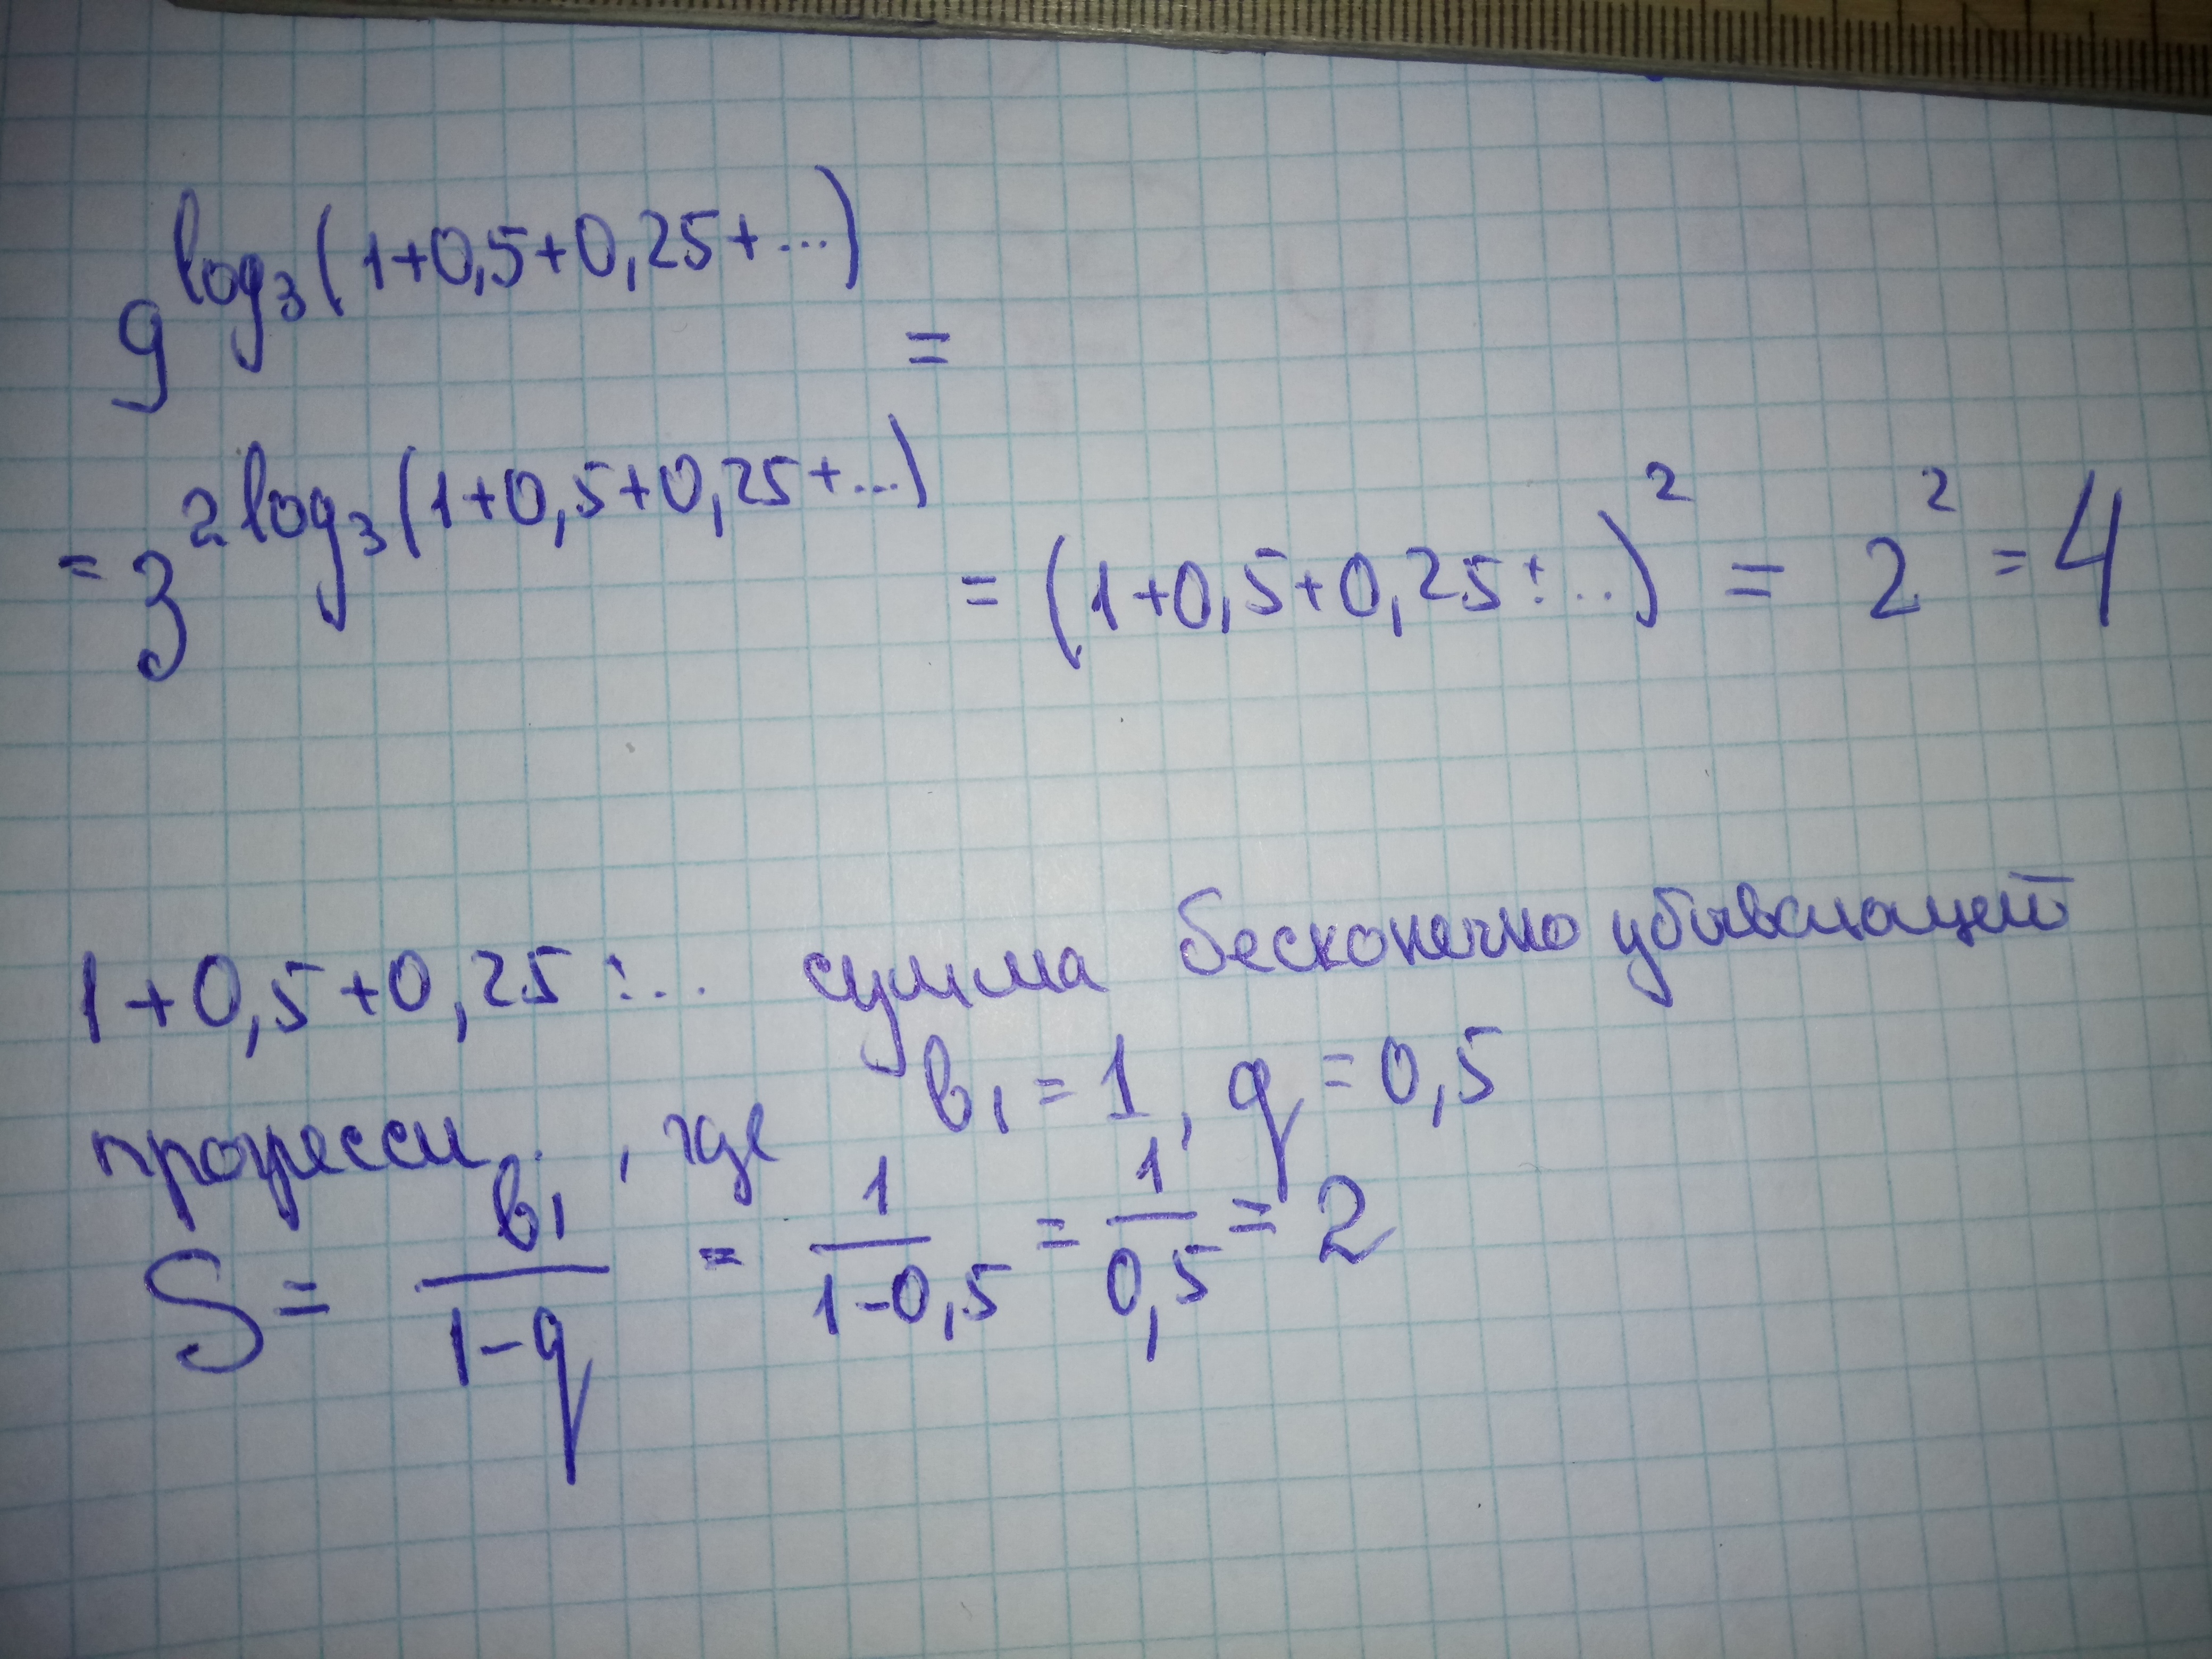 9^log₃(1+0,5+0,25+...) =
= 3^2log₃(1+0,5+0,25+...) = (1+0,5+0,25+...)² = 2² = 4
1+0,5+0,25+... сумма бесконечно убывающей
прогресси , где b₁ = 1, q = 0,5
S = b₁/(1-q) = 1/(1-0,5) = 1/0,5 = 2